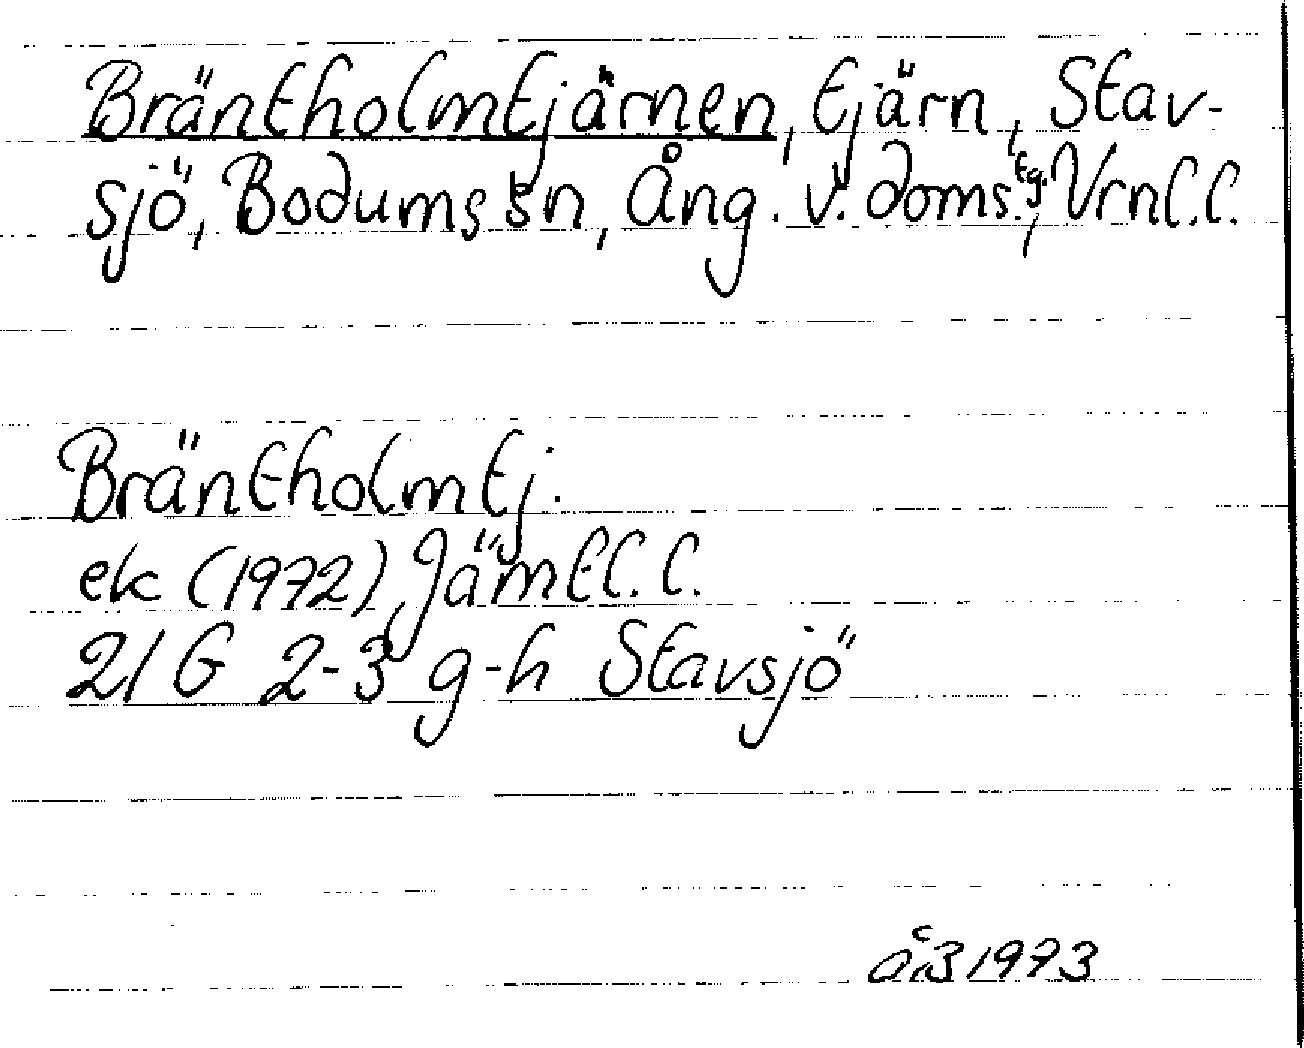 Bräntholmtjärnen, tjärn, Stav-
sjö, Bodums sn, Ång. v. doms.tg., Vrnl.l.
Bräntholmtj.
ek (1972), Jämtl.l.
21 G 2-3 g-h Stavsjö
1973